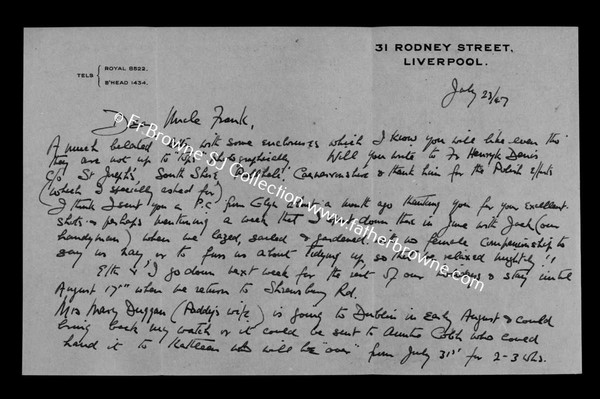 31 RODNEY STREET,
LIVERPOOL.
TELS { ROYAL 5522.
B'HEAD 1434.
July 23/47
Dear Uncle Frank,
A much belated note with some enclosures which I know you will like even tho'
they are not up to "tops" photographically. Will you write to Fr Henryk
c/o St Joseph's, South Shore Caernarvonshire & thank him for the Polish
(which I specially asked for)
I think I sent you a P.C. from a month ago thanking you for your excellent
& perhaps mentioning a week that I spent down there in June with Jack (our
handyman) when we lazed, sailed & gardened with no female companionship to
say us nay, or to fuss us about tidying up, so that we relaxed mightily!!
Eith & I go down next week for the rest of our holidays & stay until
August 17th when we return to Shrewsbury Rd.
Mrs Mary Duggan (Paddy's wife) is going to Dublin in early August & could
bring back my watch or it could be sent to Auntie who could
hand it to Kathleen who will be "over" from July 31st for 2-3 wks.
© Fr. Browne S.J. Collection www.fatherbrowne.com